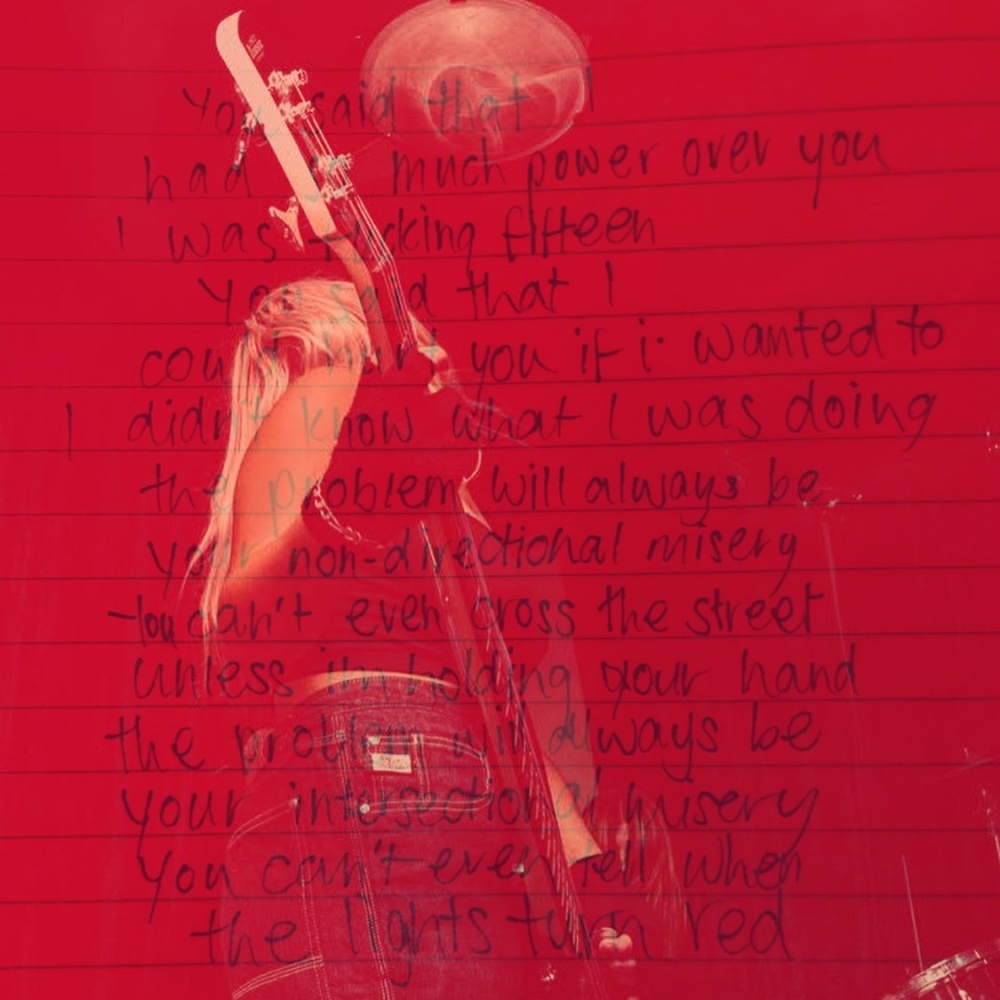 You said that I
had so much power over you
I was fucking fifteen
You said that I
could hurt you if i wanted to
I didn't know what I was doing
the problem will always be
your non-directional misery
You can't even cross the street
unless im holding your hand
the problem will always be
your intersectional misery
You can't even tell when
the lights turn red